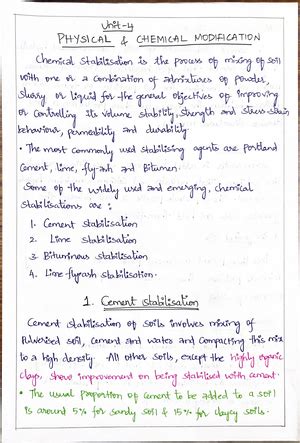 Unit-4
PHYSICAL & CHEMICAL MODIFICATION
Chemical Stabilisation is the process of mixing of soil
with one or a combination of admixtures of powder,
slurry or liquid for the general objectives of improving
or controlling its volume stability, strength and stress-strain
behaviour, permeability and durability.
• The most commonly used stabilising agents are Portland
Cement, lime, fly-ash and Bitumen.
Some of the widely used and emerging, chemical
stabilisations are :
1. Cement stabilisation
2. Lime stabilisation
3. Bituminous stabilisation
4. Lime-flyash stabilisation.
1. Cement stabilisation
Cement stabilisation of soils involves mixing of
Pulverised soil, cement and water and compacting this mix
to a high density. All other soils, except the highly organic
clays, show improvement on being stabilised with cement.
• The usual proportion of cement to be added to a soil
is around 5% for sandy soil & 15% for clayey soils.